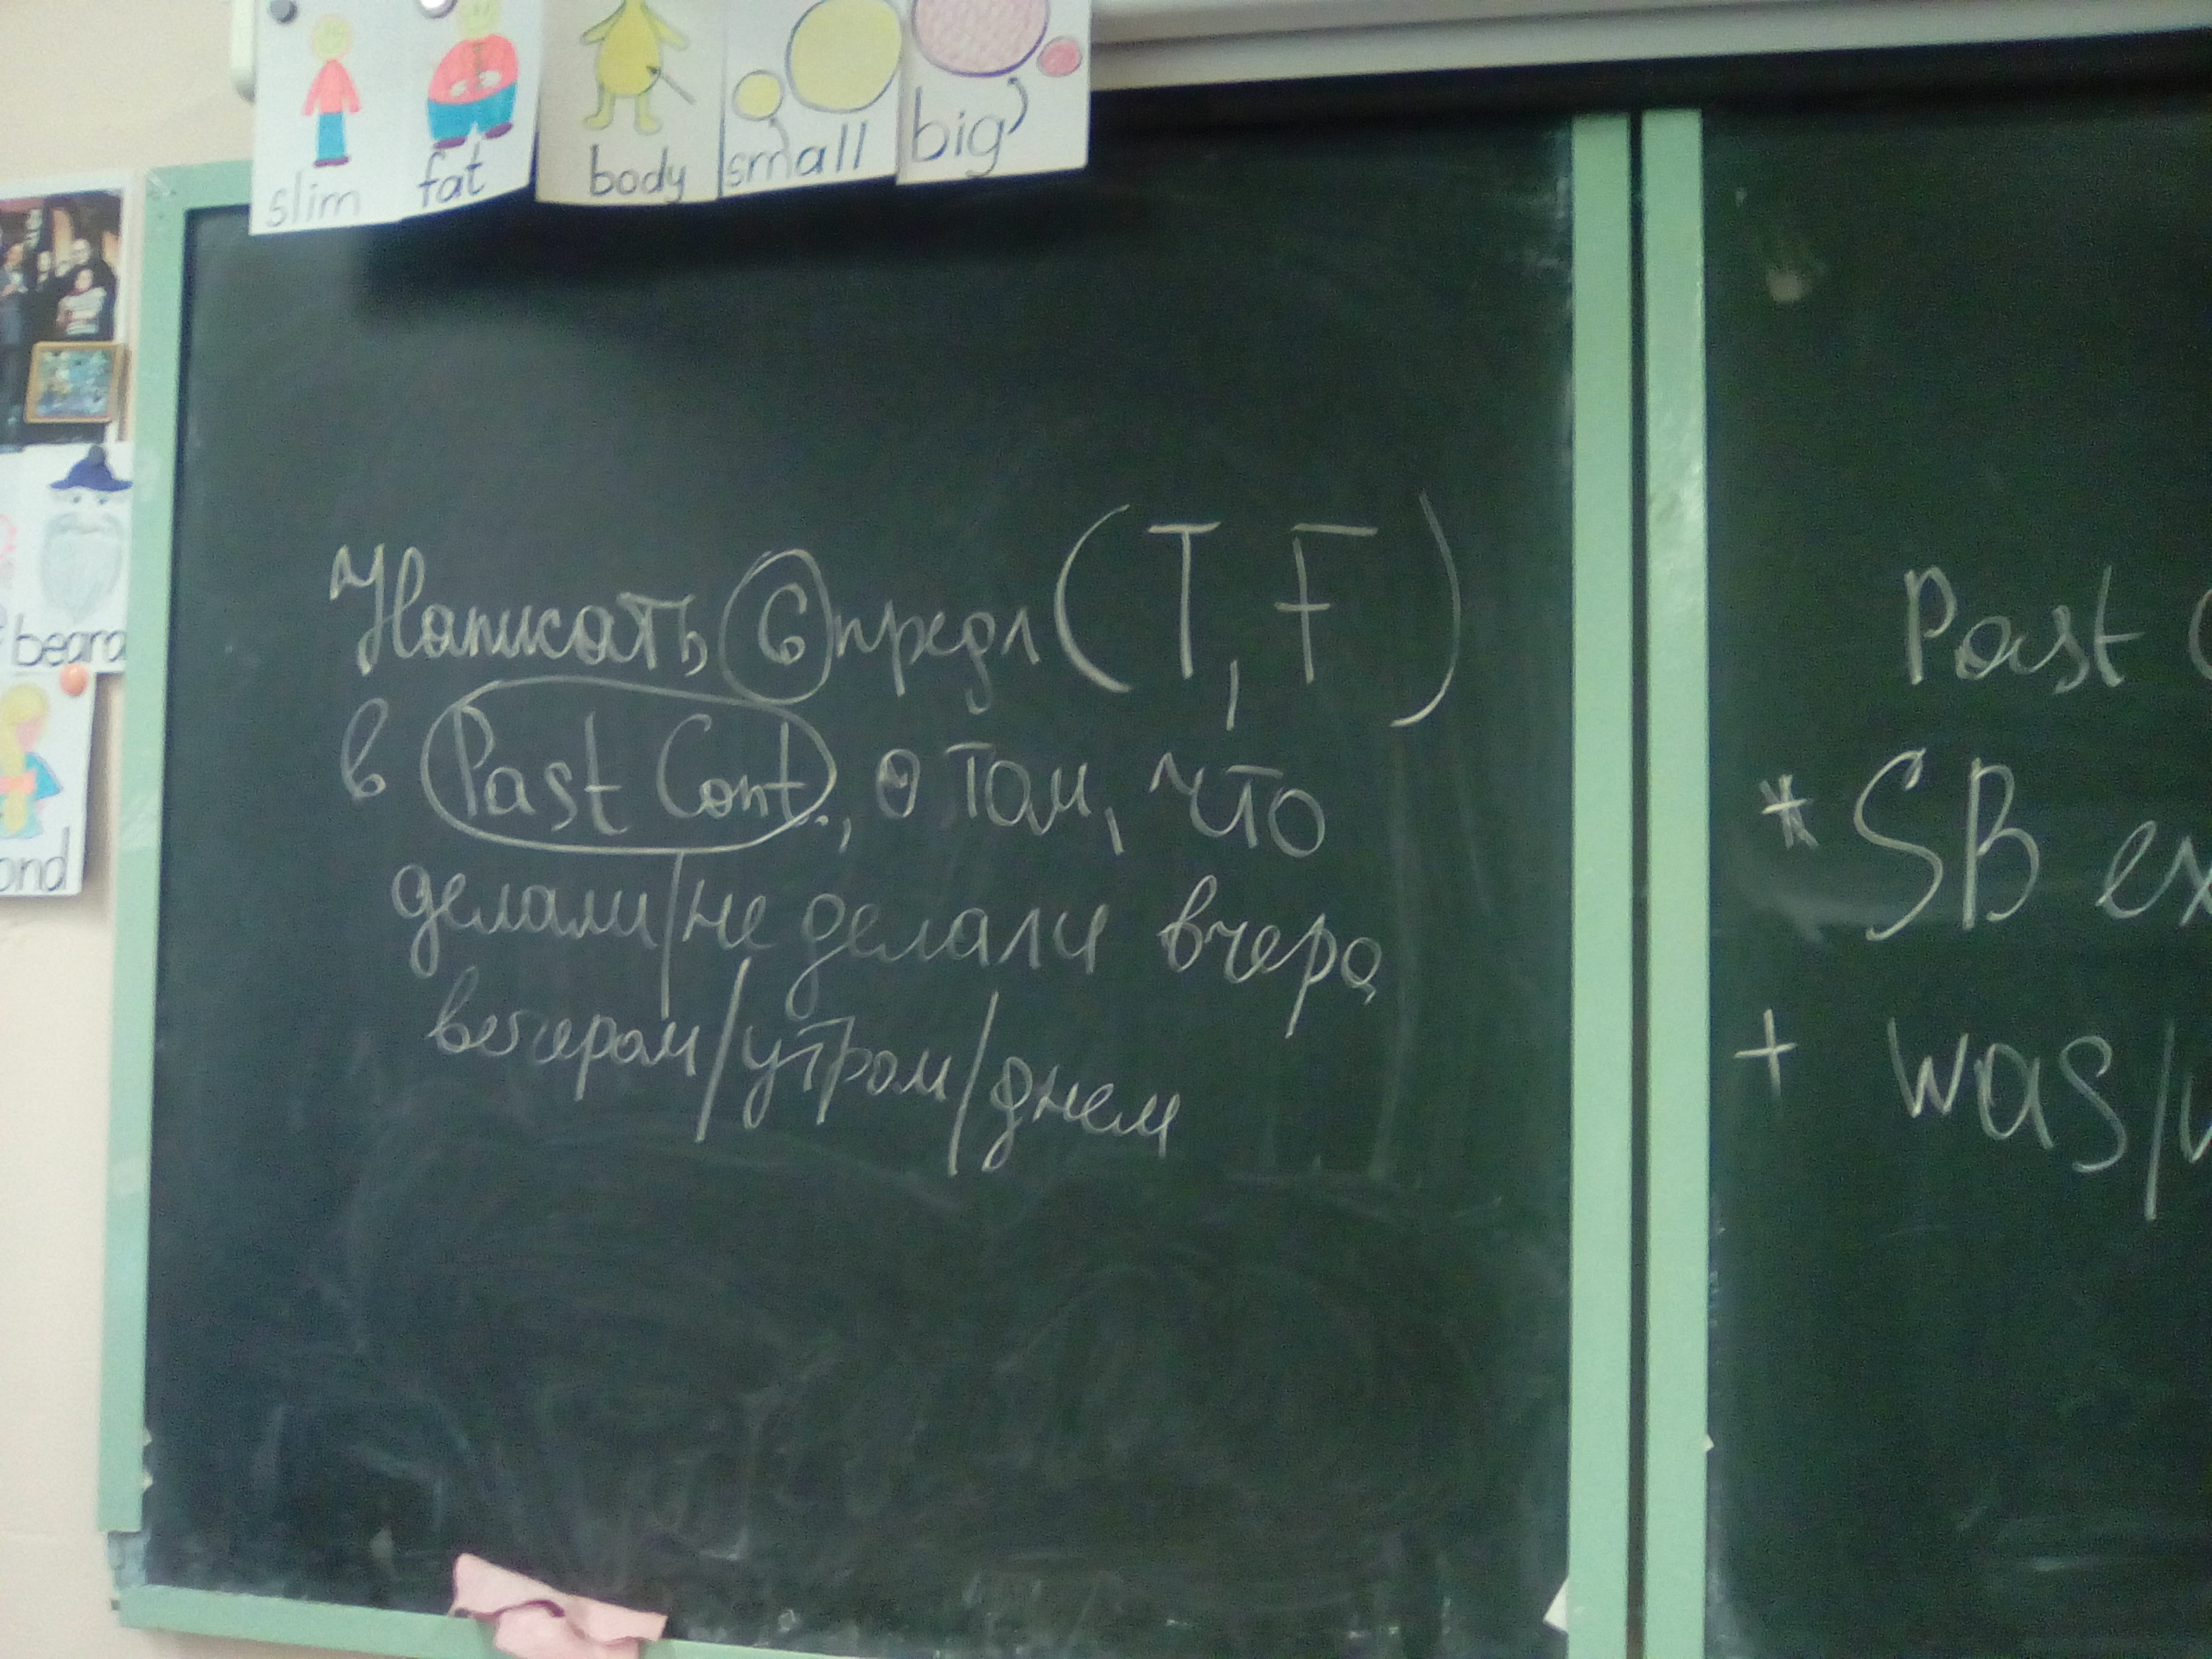 slim fat body small big
beard
ond
Написать 6 предл (T, F)
в Past Cont., о том, что
делали/не делали вчера
вечером/утром/днем
Past C
* SB ex
+ was/w